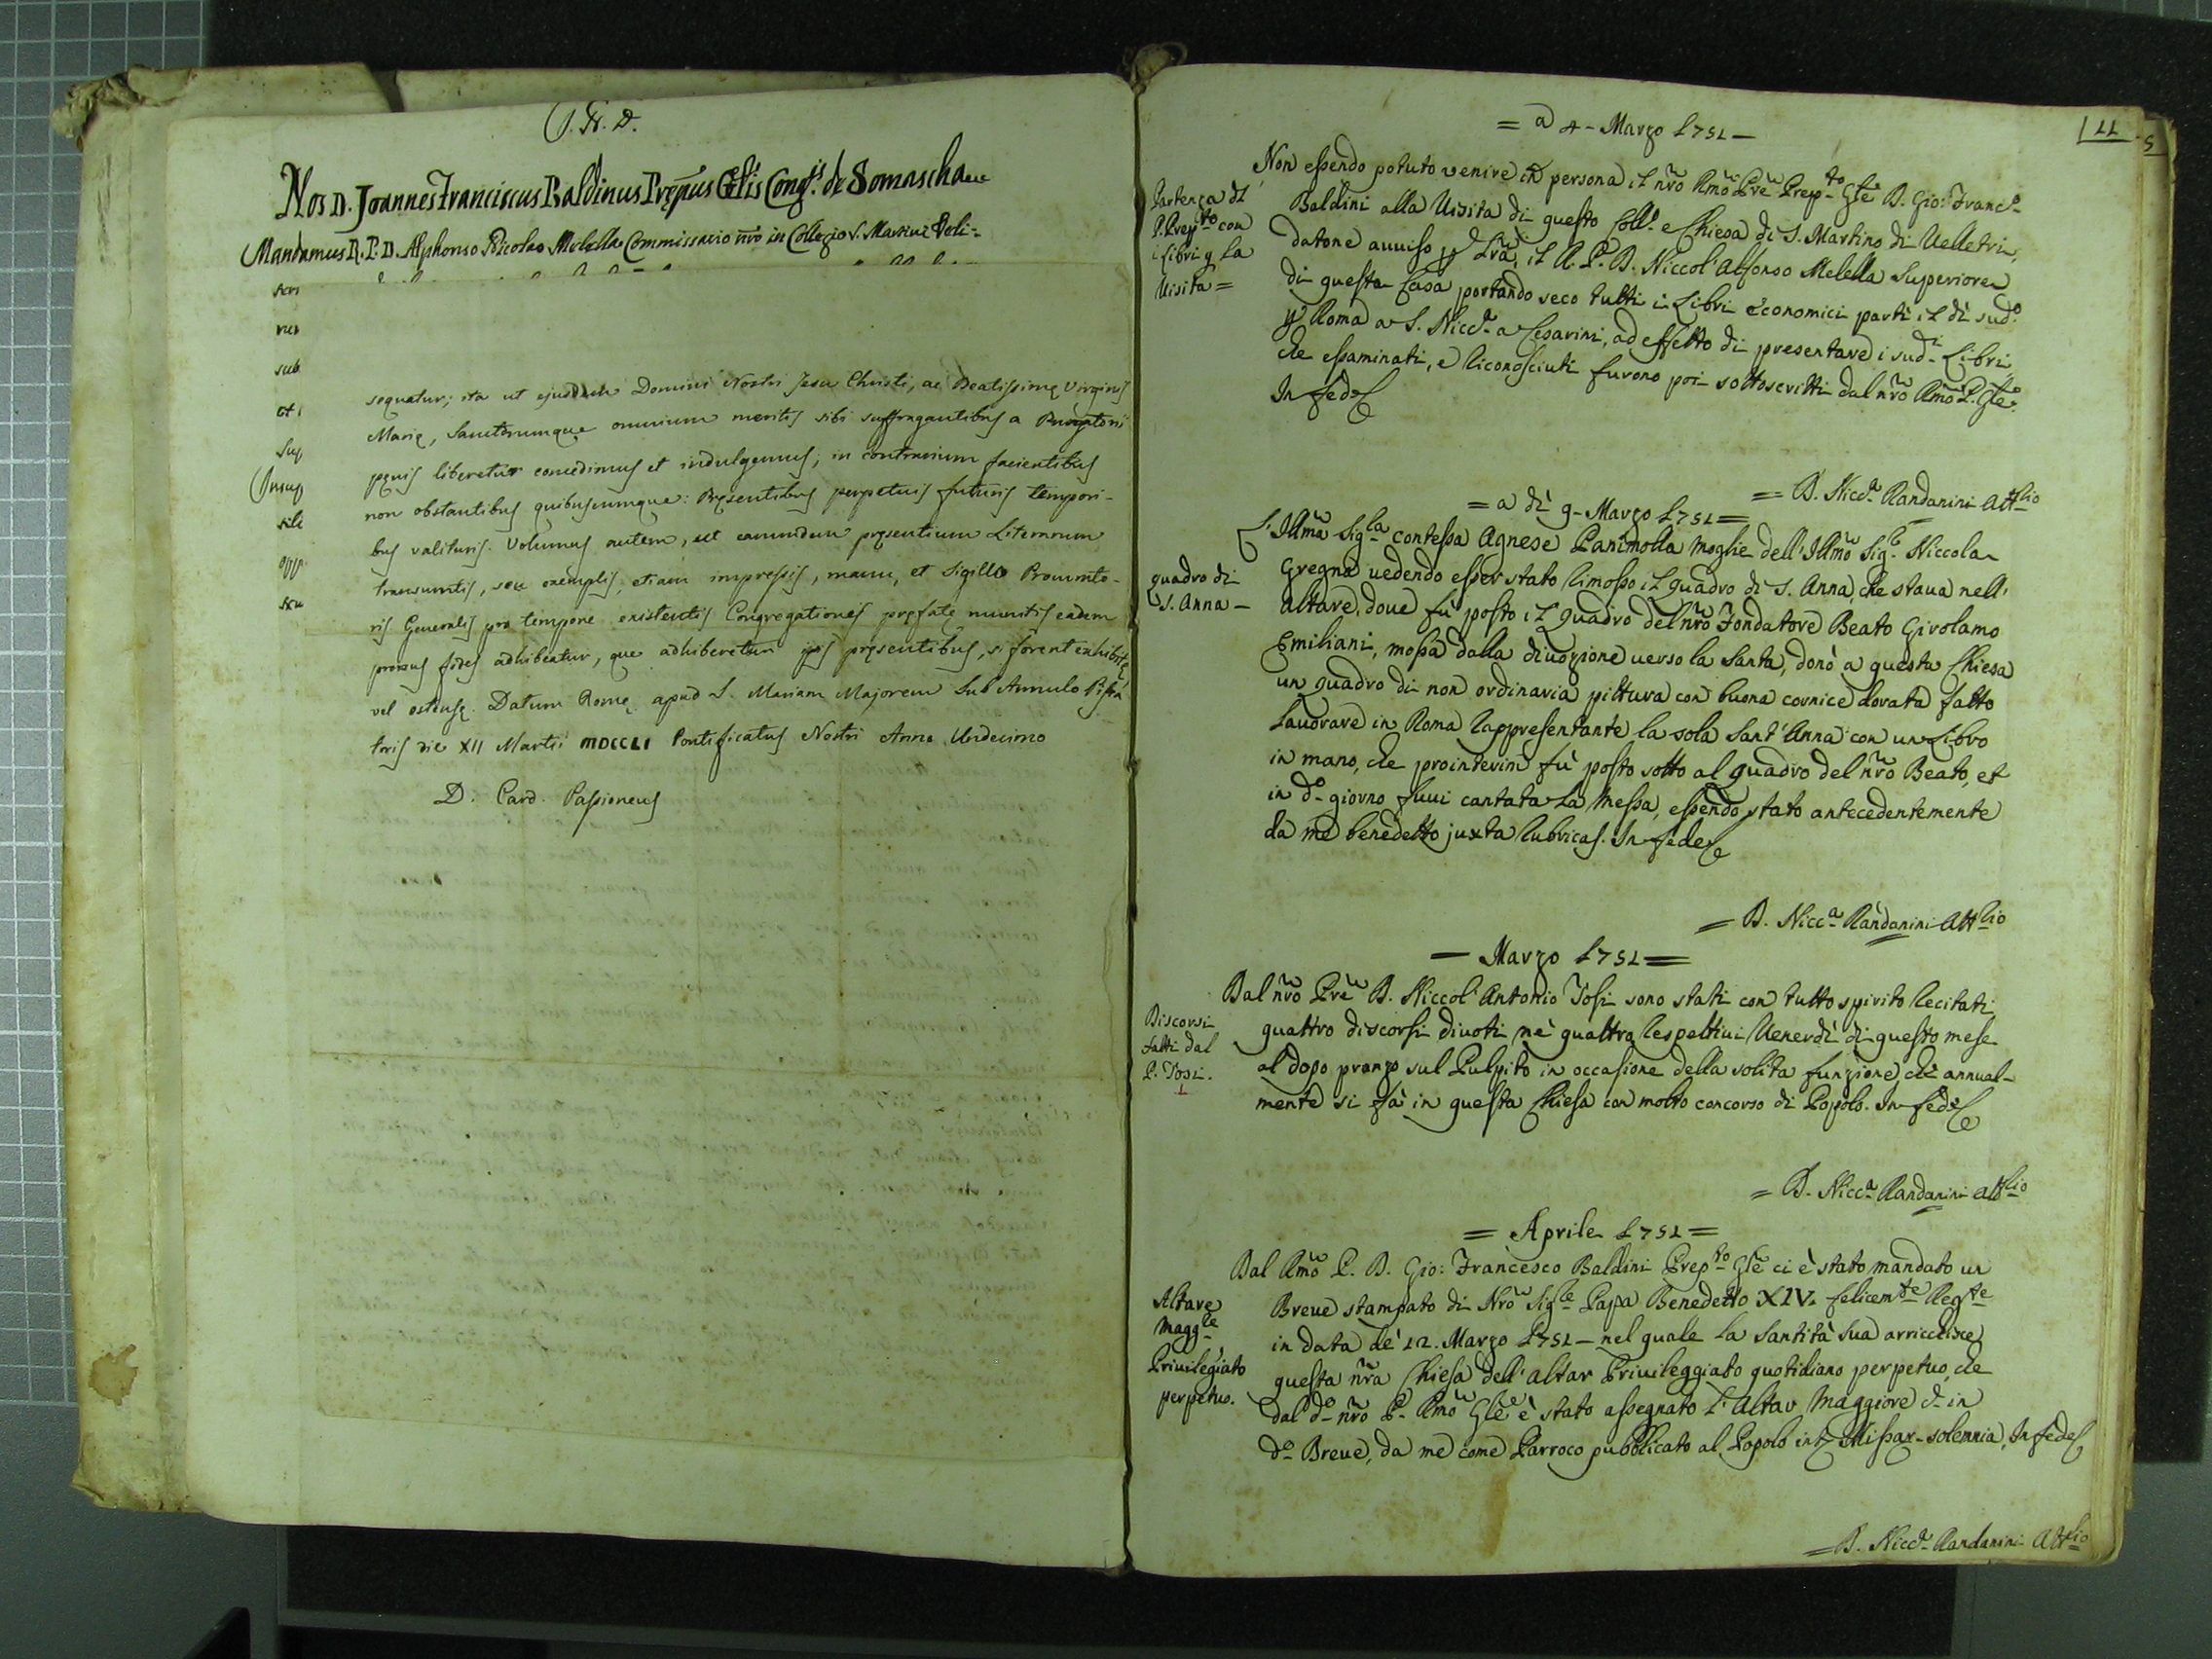 J. N. D.
Nos D. Joannes Franciscus Baldinus Prępus Gñlis Congñis de Somascha
Mandamus R. P. D. Alphonso Nicolao Melella Commissario nr̃o in Collegio S. Martini Veli=
scri
ner
sub
et
Sup
Insup
sile
opp
sequatur; ita ut ejusdem Domini Nostri Jesu Christi, ac Beatissimę Virginis
Marię, Sanctorumque omnium meritis sibi suffragantibus a Purgatorii
pęnis liberetur concedimus et indulgemus; in contrarium facientibus
non obstantibus quibuscumque: Pręsentibus perpetuis futuris tempori-
bus valituris. Volumus autem, ut earumdem pręsentium Literarum
transumtis, seu exemplis, etiam impressis, manu, et Sigillo Procurato-
ris Generalis pro tempore existentis Congregationis pręfatę munitis eadem
prorsus fides adhibeatur, que adhiberetur ipsis pręsentibus, si forent exhibitę
vel ostensę. Datum Romę apud S. Mariam Majorem Sub Annulo Pisca
toris die XII Martii MDCCLI Pontificatus Nostri Anno Undecimo
D. Card. Passioneus
11
5
= a 4 - Marzo 1751 —
Partenza del
P. Prepto con
i libri p la
Visita =
Non essendo potuto venire in persona il nr̃o Rmo Pre Prepto Gle D. Gio: Franco
Baldini alla Visita di questo Collo e Chiesa di S. Martino di Velletri,
datone auuiso p Lra, il R. P. D. Niccol' Alfonso Melella Superiore
di questa Casa portando seco tutti i Libri economici partì il dì sudo
p Roma a S. Niccola a Cesarini, ad effetto di presentare i sudi Libri
che essaminati, e riconosciuti furono poi sottoscritti dal nr̃o Rmo P. Gle
In fede
= D. Niccola Randanini Attlio
= a dì 9 - Marzo 1751 =
quadro di
S. Anna —
L'Illma Sigla contessa Agnese Panimolla Moglie dell'Illmo Sigr Niccola
Gregna vedendo esser stato rimosso il quadro di S. Anna, che staua nell'
altare, doue fù posto il quadro del nr̃o Fondatore Beato Girolamo
Emiliani, mossa dalla diuozione uerso la Santa, donò a questa Chiesa
un quadro di non ordinaria pittura con buona cornice dorata fatto
lauorare in Roma rappresentante la sola Sant'Anna con un Libro
in mano, che prointerim fù posto sotto al quadro del nr̃o Beato, et
in do giorno fuui cantata la Messa, essendo stato antecedentemente
da me benedetto juxta Rubricas. In fede
= D. Nicca Randanini Attlio
— Marzo 1751 =
Discorsi
fatti dal
P. Tosi.
Dal nr̃o Pre D. Niccol' Antonio Tosi sono stati con tutto spirito recitati
quattro discorsi diuoti ne' quattro respettiui Venerdì di questo mese
al dopo pranzo sul Pulpito in occasione della solita funzione che annual-
mente si fà in questa Chiesa con molto concorso di Popolo. In fede
= D. Nicca Randanini Attlio
= Aprile 1751 =
Altare
Maggle
Priuilegiato
perpetuo.
Dal Rmo P. D. Gio: Francesco Baldini Prepto Gle ci è stato mandato un
Breue stampato di Nro Sigle Papa Benedetto XIV. felicemte Regte
in data de' 12. Marzo 1751 — nel quale la Santità Sua arricchisce
questa nr̃a Chiesa dell'altar Priuileggiato quotidiano perpetuo, che
dal do nr̃o P. Rmo Gle è stato assegnato l'Altar Maggiore e in
do Breue, da me come Parroco pubblicato al Popolo int Missar solemnia. In fede
= D. Niccola Randanini Attlio